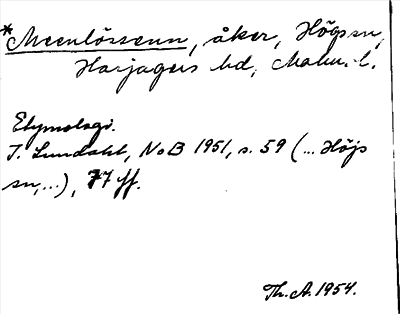 *Meenlössenn, åker, Högs sn,
Harjagers hd, Malm. l.
Etymologi.
I. Lundahl, NoB 1951, s. 59 (... Högs
sn, ...), 77 ff.
Th. A. 1954.